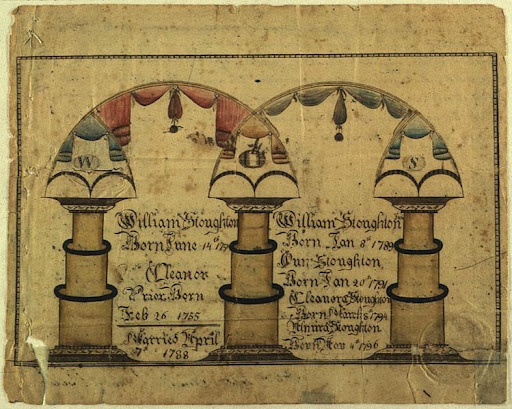 W
S
William Stoughton
Born June 14th
Eleanor
Prior Born
Feb 26 1755
Married April
1788
William Stoughton
Born Jan 8th 1789
Stoughton
Born Jan 20th 1791
Eleanor Stoughton
Born March 8th 1794
Stoughton
Born Nov 4th 1796